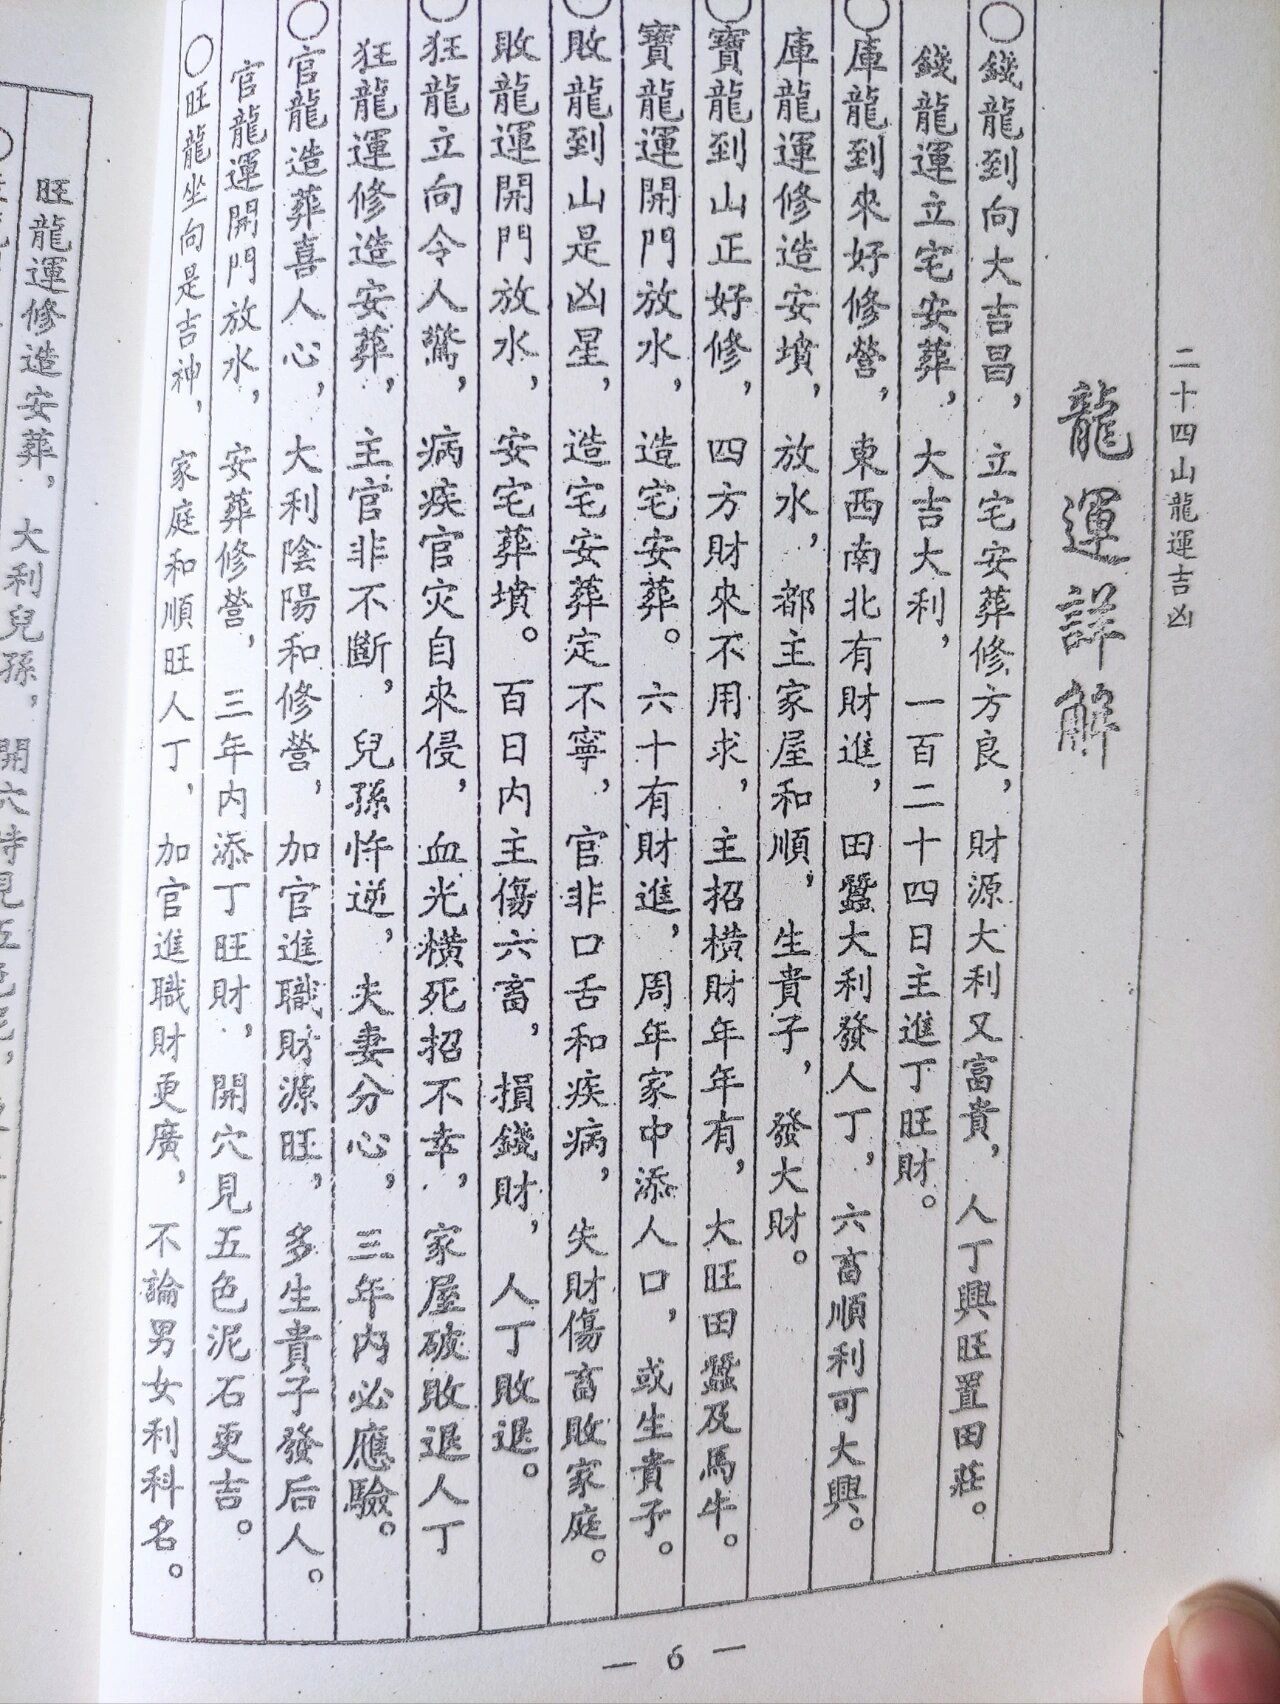 二十四山龍運吉凶
龍運詳解
○錢龍到向大吉昌，立宅安葬修方良，財源大利又富貴，人丁興旺置田莊。
錢龍運立宅安葬，大吉大利，一百二十四日主進丁旺財。
○庫龍到來好修營，東西南北有財進，田蠶大利發人丁，六畜順利可大興。
庫龍運修造安墳，放水，都主家屋和順，生貴子，發大財。
○寶龍到山正好修，四方財來不用求，主招橫財年年有，大旺田蠶及馬牛。
寶龍運開門放水，造宅安葬。六十有財進，周年家中添人口，或生貴子。
○敗龍到山是凶星，造宅安葬定不寧，官非口舌和疾病，失財傷畜敗家庭。
敗龍運開門放水，安宅葬墳。百日內主傷六畜，損錢財，人丁敗退。
○狂龍立向令人驚，病疾官灾自來侵，血光橫死招不幸，家屋破敗退人丁
狂龍運修造安葬，主官非不斷，兒孫忤逆，夫妻分心，三年內必應驗。
○官龍造葬喜人心，大利陰陽和修營，加官進職財源旺，多生貴子發后人。
官龍運開門放水，安葬修營，三年內添丁旺財，開穴見五色泥石更吉。
○旺龍坐向是吉神，家庭和順旺人丁，加官進職財更廣，不論男女利科名。
旺龍運修造安葬，大利兒孫，開穴時見五
— 6 —